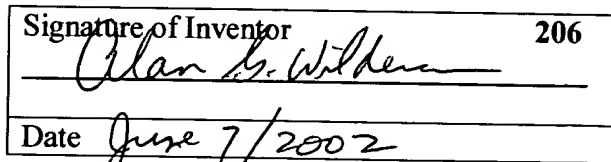 Signature of Inventor 206
Alan G. Wilderman
Date June 7/2002